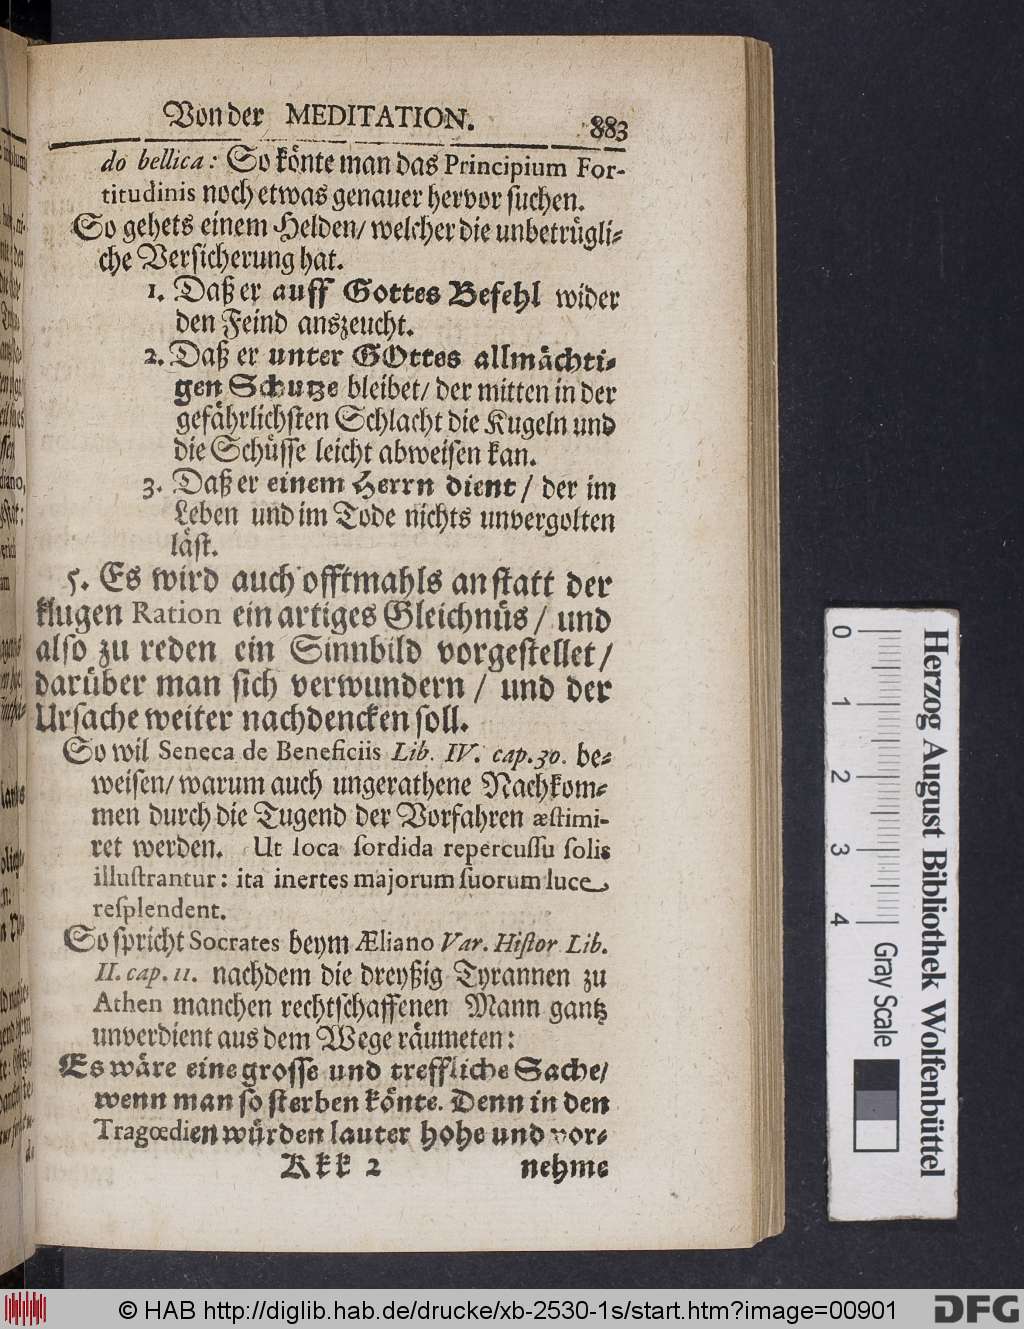 Von der MEDITATION. 883
do bellica: So könte man das Principium For-
titudinis noch etwas genauer hervor suchen.
So gehets einem Helden/ welcher die unbetrügli-
che Versicherung hat.
1. Daß er auff Gottes Befehl wider
den Feind anszeucht.
2. Daß er unter GOttes allmächti-
gen Schutze bleibet/ der mitten in der
gefährlichsten Schlacht die Kugeln und
die Schüsse leicht abweisen kan.
3. Daß er einem Herrn dient/ der im
Leben und im Tode nichts unvergolten
läst.
5. Es wird auch offtmahls an statt der
klugen Ration ein artiges Gleichnüs/ und
also zu reden ein Sinnbild vorgestellet/
darüber man sich verwundern/ und der
Ursache weiter nachdencken soll.
So wil Seneca de Beneficiis Lib. IV. cap. 30. be-
weisen/ warum auch ungerathene Nachkom-
men durch die Tugend der Vorfahren æstimi-
ret werden. Ut loca sordida repercussu solis
illustrantur: ita inertes majorum suorum luce
resplendent.
So spricht Socrates beym Æliano Var. Histor Lib.
II. cap. 11. nachdem die dreyßig Tyrannen zu
Athen manchen rechtschaffenen Mann gantz
unverdient aus dem Wege räumeten:
Es wäre eine grosse und treffliche Sache/
wenn man so sterben könte. Denn in den
Tragœdien würden lauter hohe und vor-
Kkk 2 nehme
0 1 2 3 4
Gray Scale
Herzog August Bibliothek Wolfenbüttel
© HAB http://diglib.hab.de/drucke/xb-2530-1s/start.htm?image=00901
DFG